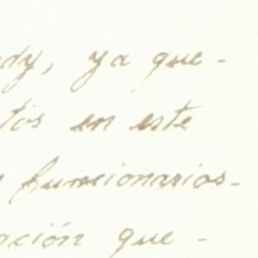 dy, ya que-
tos en este
funcionarios-
ación que-